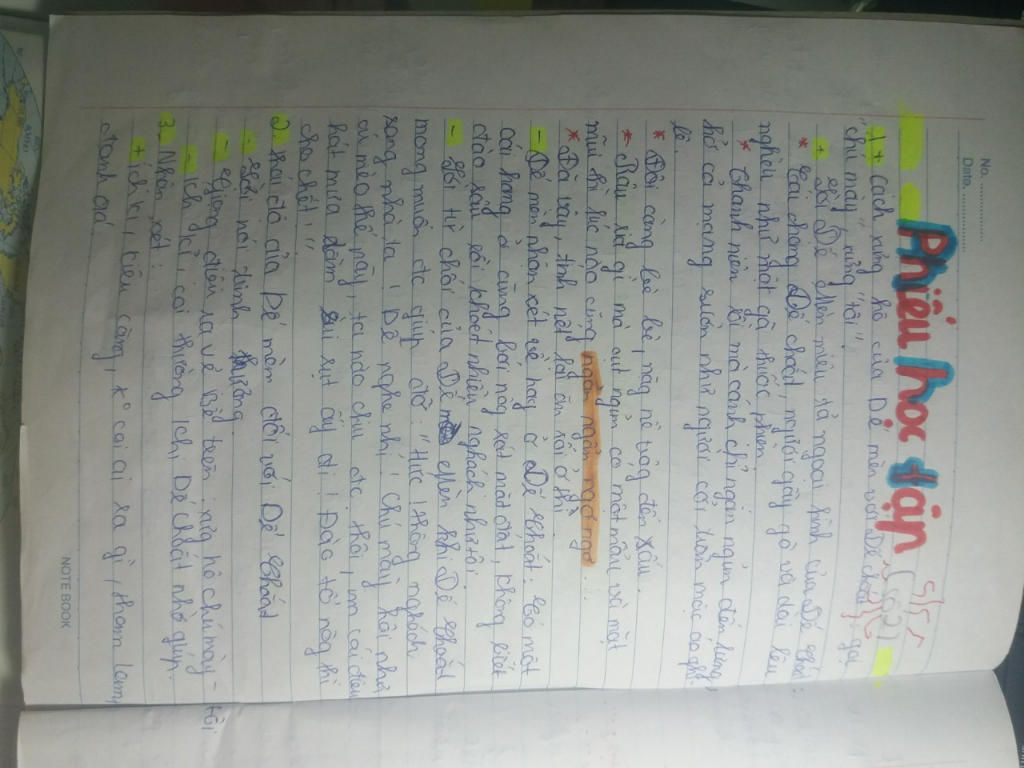 No. ............
Date. ............
Phiếu học tập (Số 2)
5/5
1 + cách xưng hô của Dế mèn với Dế choắt: gọi
"chú mày", xưng "tôi",
+ Lời Dế Mèn miêu tả ngoại hình của Dế choắt:
* Cái chàng Dế choắt, người gầy gò và dài lêu
nghêu như một gã thuốc phiện
* Thanh niên gì mà cánh chỉ ngắn ngủn đến lưng,
hở cả mạng sườn như người cởi trần mặc áo ghi
lê.
* Đôi càng bè bè, nặng nề trông đến xấu.
* Râu ria gì mà cụt ngủn có một mẩu và mặt
mũi thì lúc nào cũng ngẩn ngẩn ngơ ngơ ...
* Đã vậy, tính nết lại ăn xổi ở thì
- Dế mèn nhận xét về hang ở Dế choắt: Có một
cái hang ở cũng bới nông sát mặt đất, không biết
đào sâu rồi khoét nhiều nghách như tôi.
- Lời từ chối của Dế Mèn khi Dế choắt
mong muốn đc giúp đỡ: "Hức! thông nghách
sang nhà ta! Dế nghe nhỉ! Chú mày hôi như
cú mèo thế này, ta nào chịu đc. Thôi, im cái điệu
hát mưa dầm sùi sụt ấy đi! Đào tổ nông thì
cho chết!"
2 thái độ của Dế mèn đối với Dế choắt
- Lời nói dinh thường
- Giọng điệu ra vẻ Bề trên: xưng hô chú mày - tôi
- ích kỉ, coi thường khi Dế choắt nhờ giúp.
3. Nhận xét:
+ ích kỉ, kiêu căng, k° coi ai ra gì, tham lam,
đanh đá
NOTE BOOK